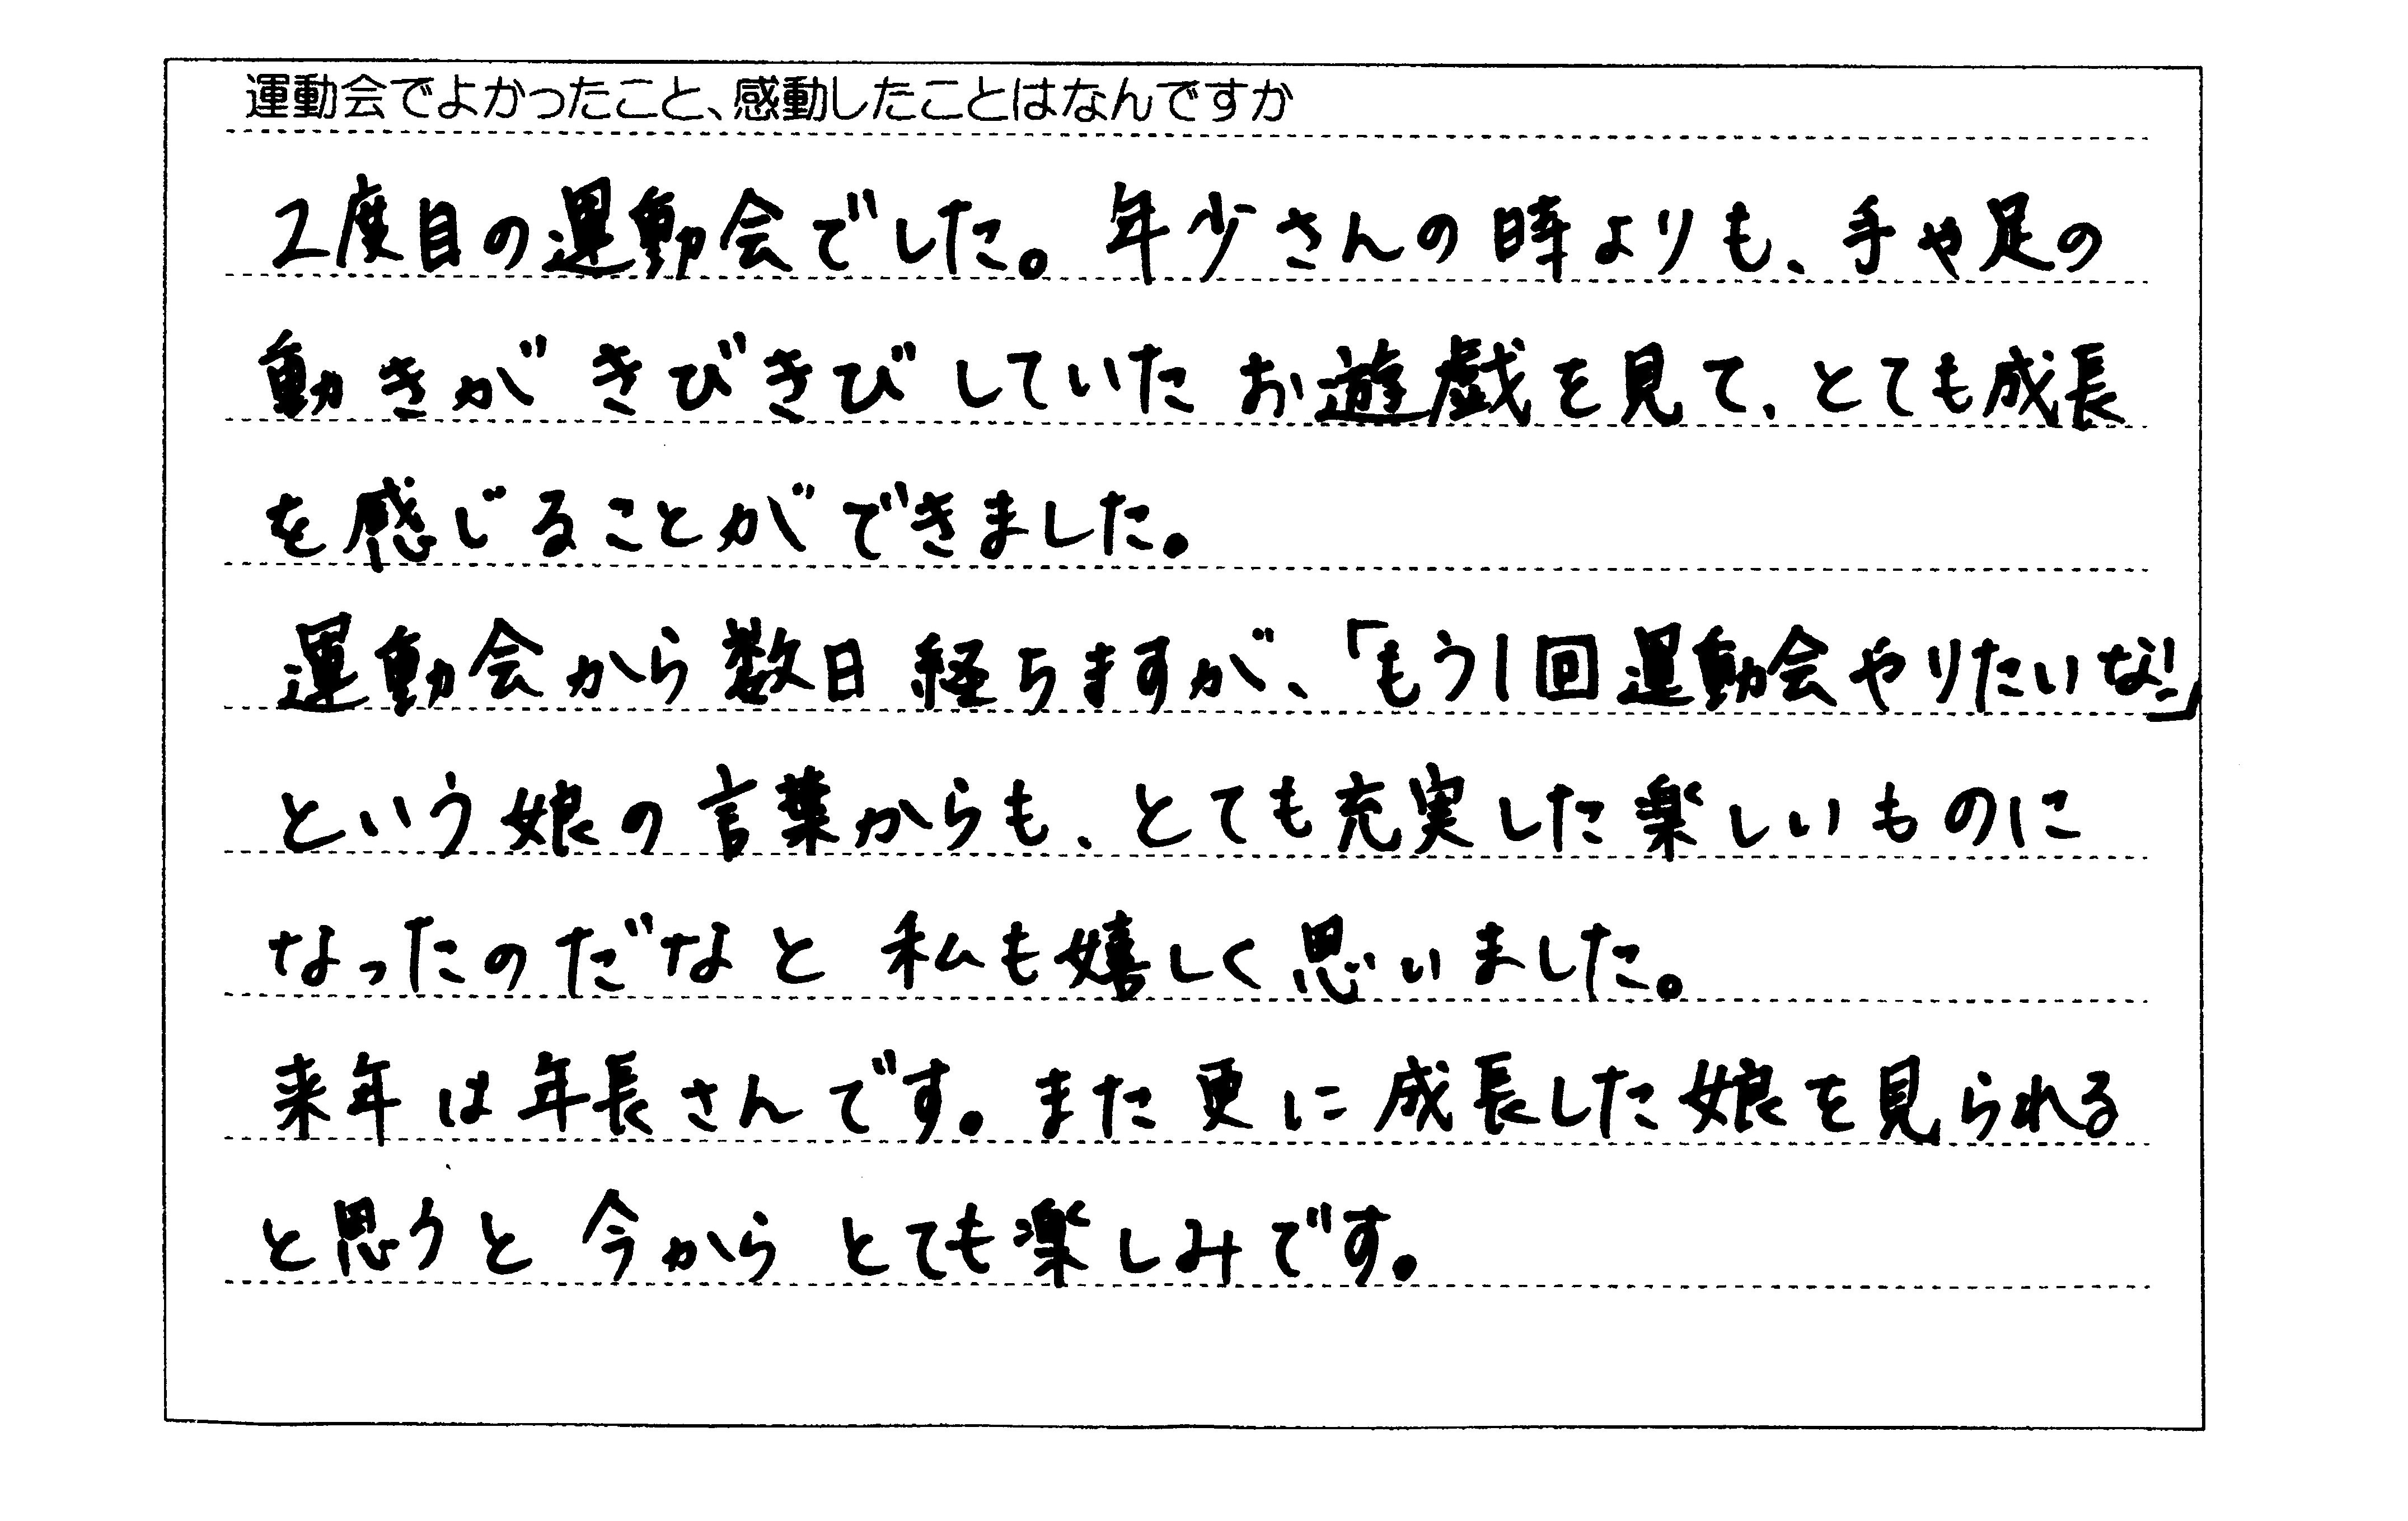 運動会でよかったこと、感動したことはなんですか
2度目の運動会でした。年少さんの時よりも、手や足の
動きがきびきびしていたお遊戯を見て、とても成長
を感じることができました。
運動会から数日経ちますが、「もう1回運動会やりたいな!!」
という娘の言葉からも、とても充実した楽しいものに
なったのだなと私も嬉しく思いました。
来年は年長さんです。また更に成長した娘を見られる
と思うと今からとても楽しみです。